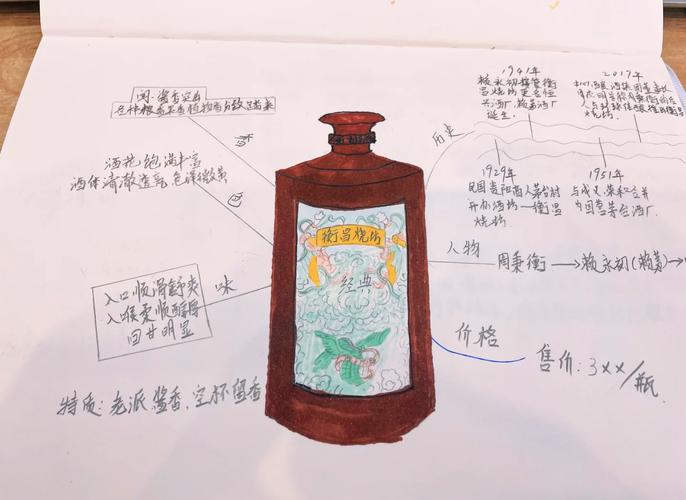 闻:酱香突出
各种粮香果香植物香分致过来
香
酒花饱满丰富
酒体清澈透亮 色泽微黄
色
入口顺滑舒爽
入喉柔顺醇厚
回甘明显
味
特质:老派酱香,空杯留香
衡昌烧坊
经典
历史
1941年
赖永初接管衡
昌烧坊更名恒
兴酒厂,赖茅酒厂
诞生.
2019年
衡昌
烧坊.
1929年
民国贵阳商人茅台村
开办酒坊—衡昌
烧坊.
1951年
与成义荣和合并
为国营茅台酒厂.
人物
周秉衡→赖永初(赖茅)→
价格
售价:3xx/瓶